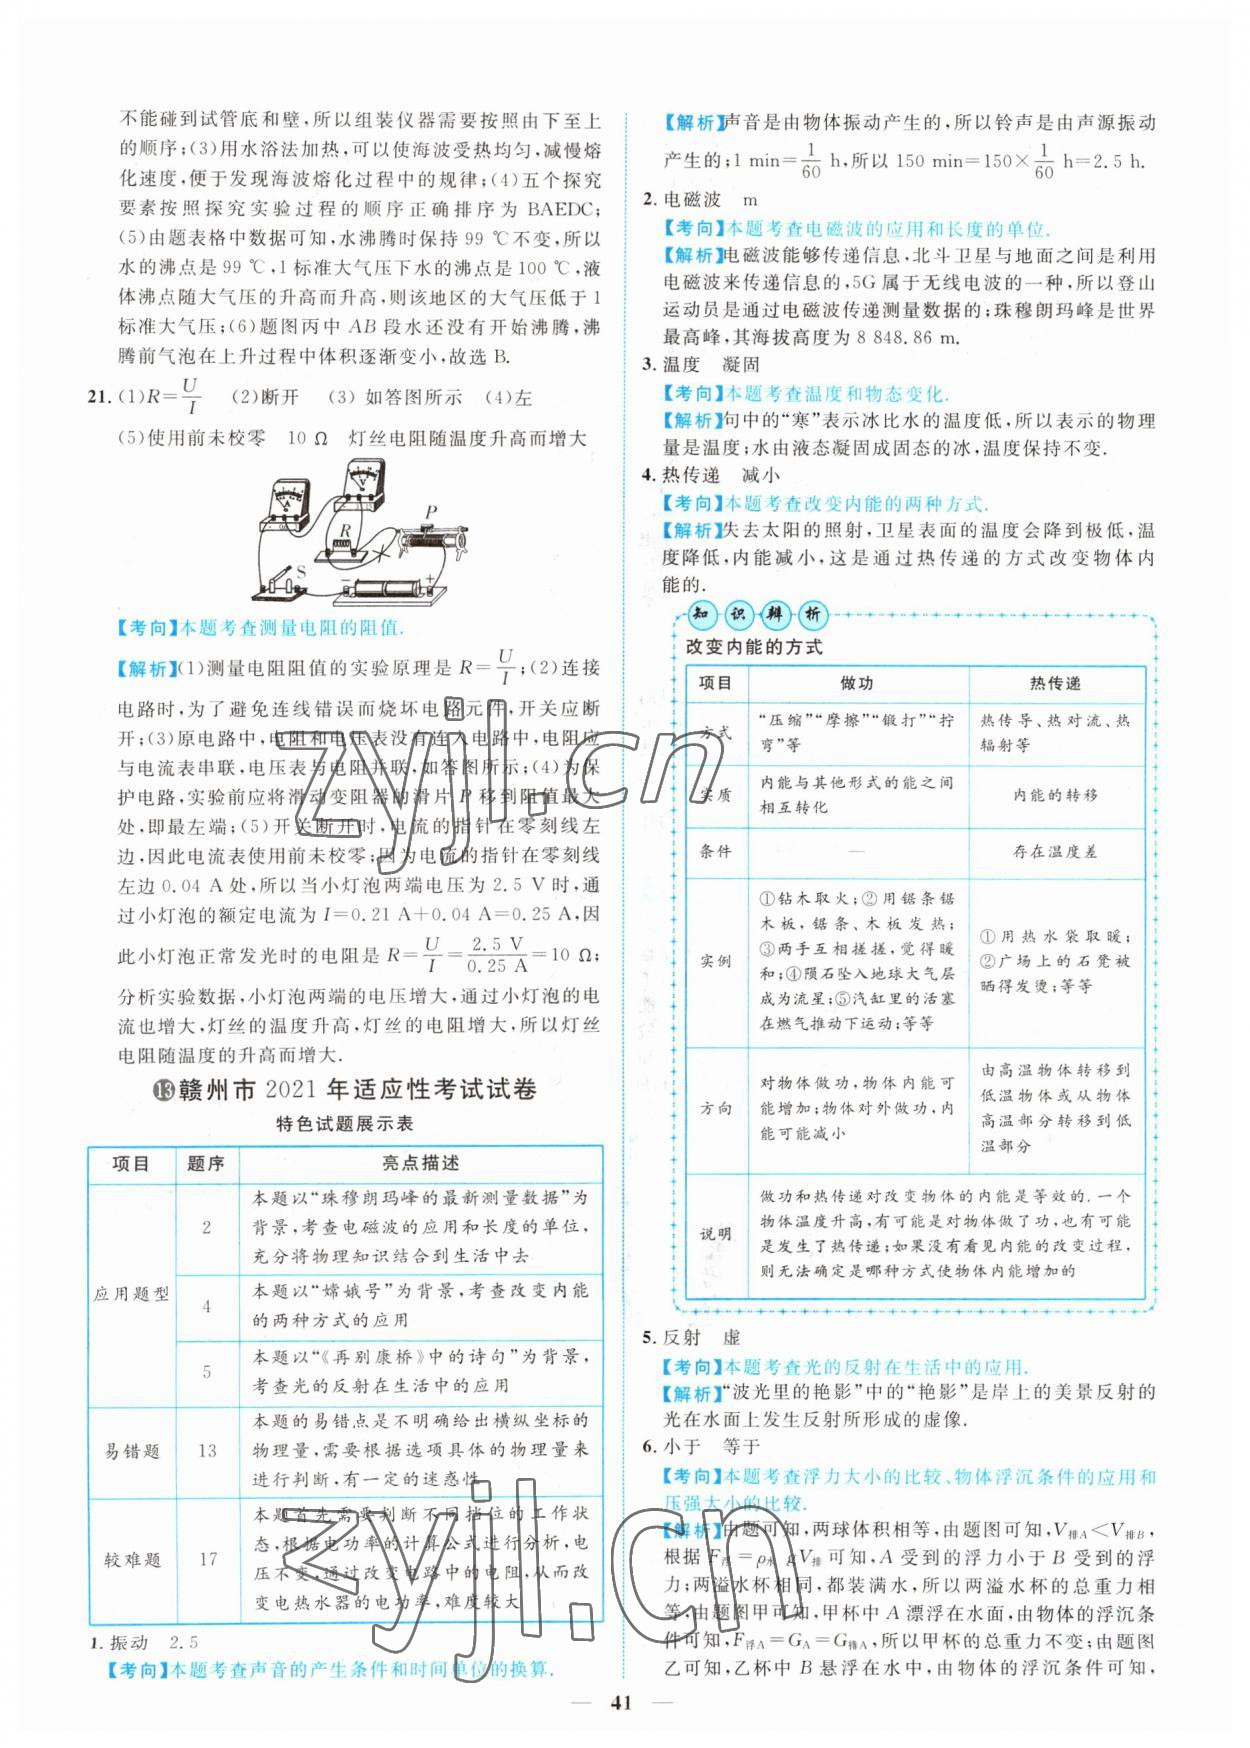 不能碰到试管底和壁,所以组装仪器需要按照由下至上
的顺序;(3)用水浴法加热,可以使海波受热均匀,减慢熔
化速度,便于发现海波熔化过程中的规律;(4)五个探究
要素按照探究实验过程的顺序正确排序为 BAEDC;
(5)由题表格中数据可知,水沸腾时保持 99 ℃不变,所以
水的沸点是 99 ℃,1标准大气压下水的沸点是 100 ℃,液
体沸点随大气压的升高而升高,则该地区的大气压低于 1
标准大气压;(6)题图丙中 AB 段水还没有开始沸腾,沸
腾前气泡在上升过程中体积逐渐变小,故选 B.
21. (1)R=U/I (2)断开 (3) 如答图所示 (4)左
(5)使用前未校零 10 Ω 灯丝电阻随温度升高而增大
A V R P S − +
【考向】本题考查测量电阻的阻值.
【解析】(1)测量电阻阻值的实验原理是 R=U/I;(2)连接
电路时,为了避免连线错误而烧坏电路元件,开关应断
开;(3)原电路中,电阻和电压表没有连入电路中,电阻应
与电流表串联,电压表与电阻并联,如答图所示;(4)为保
护电路,实验前应将滑动变阻器的滑片 P 移到阻值最大
处,即最左端;(5)开关断开时,电流的指针在零刻线左
边,因此电流表使用前未校零;因为电流的指针在零刻线
左边 0.04 A 处,所以当小灯泡两端电压为 2.5 V 时,通
过小灯泡的额定电流为 I=0.21 A+0.04 A=0.25 A,因
此小灯泡正常发光时的电阻是 R=U/I=2.5 V/0.25 A=10 Ω;
分析实验数据,小灯泡两端的电压增大,通过小灯泡的电
流也增大,灯丝的温度升高,灯丝的电阻增大,所以灯丝
电阻随温度的升高而增大.
⑬赣州市 2021 年适应性考试试卷
特色试题展示表
项目 题序 亮点描述
应用题型 2 本题以“珠穆朗玛峰的最新测量数据”为
背景,考查电磁波的应用和长度的单位,
充分将物理知识结合到生活中去
4 本题以“嫦娥号”为背景,考查改变内能
的两种方式的应用
5 本题以“《再别康桥》中的诗句”为背景,
考查光的反射在生活中的应用
易错题 13 本题的易错点是不明确给出横纵坐标的
物理量,需要根据选项具体的物理量来
进行判断,有一定的迷惑性
较难题 17 本题首先需要判断不同挡位的工作状
态,根据电功率的计算公式进行分析,电
压不变,通过改变电路中的电阻,从而改
变电热水器的电功率,难度较大
1. 振动 2.5
【考向】本题考查声音的产生条件和时间单位的换算.
【解析】声音是由物体振动产生的,所以铃声是由声源振动
产生的;1 min=1/60 h,所以 150 min=150×1/60 h=2.5 h.
2. 电磁波 m
【考向】本题考查电磁波的应用和长度的单位.
【解析】电磁波能够传递信息,北斗卫星与地面之间是利用
电磁波来传递信息的,5G 属于无线电波的一种,所以登山
运动员是通过电磁波传递测量数据的;珠穆朗玛峰是世界
最高峰,其海拔高度为 8 848.86 m.
3. 温度 凝固
【考向】本题考查温度和物态变化.
【解析】句中的“寒”表示冰比水的温度低,所以表示的物理
量是温度;水由液态凝固成固态的冰,温度保持不变.
4. 热传递 减小
【考向】本题考查改变内能的两种方式.
【解析】失去太阳的照射,卫星表面的温度会降到极低,温
度降低,内能减小,这是通过热传递的方式改变物体内
能的.
知识辨析
改变内能的方式
项目 做功 热传递
方式 “压缩”“摩擦”“锻打”“拧
弯”等 热传导、热对流、热
辐射等
实质 内能与其他形式的能之间
相互转化 内能的转移
条件 — 存在温度差
实例 ①钻木取火;②用锯条锯
木板,锯条、木板发热;
③两手互相搓搓,觉得暖
和;④陨石坠入地球大气层
成为流星;⑤汽缸里的活塞
在燃气推动下运动;等等
①用热水袋取暖;
②广场上的石凳被
晒得发烫;等等
方向 对物体做功,物体的内能可
能增加;物体对外做功,内
能可能减小
由高温物体转移到
低温物体或从物体
高温部分转移到低
温部分
说明 做功和热传递对改变物体的内能是等效的.一个
物体温度升高,有可能是对物体做了功,也有可能
是发生了热传递;如果没有看见内能的改变过程,
则无法确定是哪种方式使物体内能增加的
5. 反射 虚
【考向】本题考查光的反射在生活中的应用.
【解析】“波光里的艳影”中的“艳影”是岸上的美景反射的
光在水面上发生反射所形成的虚像.
6. 小于 等于
【考向】本题考查浮力大小的比较、物体浮沉条件的应用和
压强大小的比较.
【解析】由题可知,两球体积相等,由题图可知,V排A<V排B,
根据 F浮=ρ水gV排 可知,A 受到的浮力小于 B 受到的浮
力;两溢水杯相同,都装满水,所以两溢水杯的总重力相
等;由题图甲可知,甲杯中 A 漂浮在水面,由物体的浮沉条
件可知,F浮A=GA=G排A,所以甲杯的总重力不变;由题图
乙可知,乙杯中 B 悬浮在水中,由物体的浮沉条件可知,
— 41 —
zyjl.cn
zyjl.cn